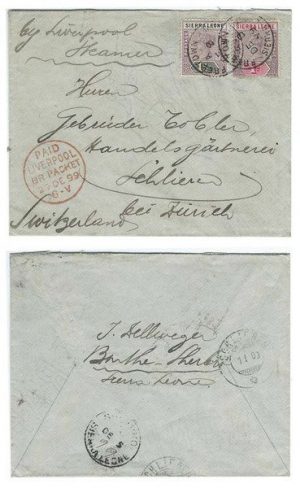 by Liverpool
Steamer
SIERRA LEONE
SIERRA LEONE
Herren
Gebrüder Tobler,
Handelsgärtnerei
Schlieren
bei Zürich
Switzerland
PAID
LIVERPOOL
BR. PACKET
DE 99
6-A
J. Dellweger
Bonthe-Sherbro
Sierra Leone
SIERRA LEONE